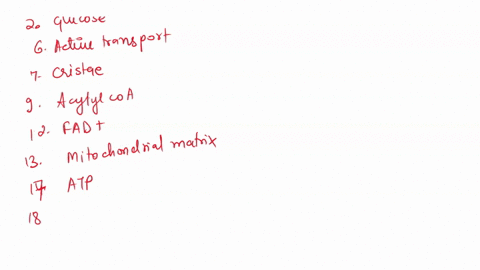 2. Glucose
6. Active transport
7. Cristae
9. Acytyl coA
12. FAD+
13. Mitochondrial matrix
17. ATP
18